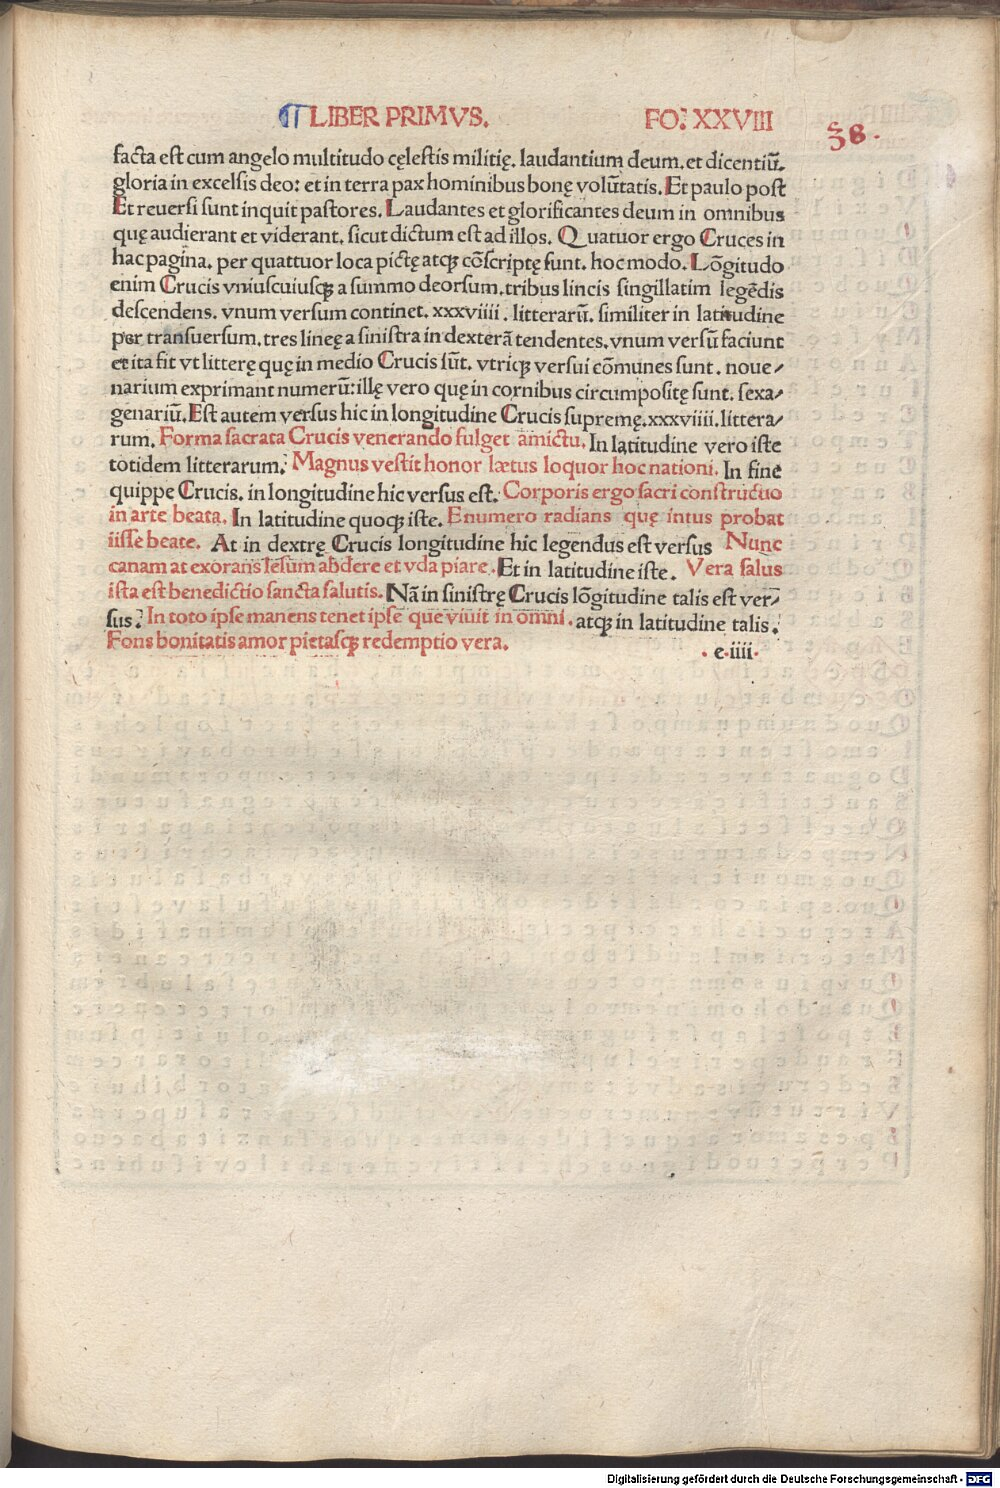 ¶ LIBER PRIMVS. FO. XXVIII
38.
facta est cum angelo multitudo cęlestis militię. laudantium deum. et dicentiū.
gloria in excelsis deo: et in terra pax hominibus bonę volūtatis. Et paulo post
Et reuersi sunt inquit pastores. Laudantes et glorificantes deum in omnibus
quę audierant et viderant. sicut dictum est ad illos. Quatuor ergo Cruces in
hac pagina. per quattuor loca pictę atqꝫ cōscriptę sunt. hoc modo. Lōgitudo
enim Crucis vniuscuiusqꝫ a summo deorsum. tribus lincis singillatim legēdis
descendens. vnum versum continet. xxxviiii. litterarū. similiter in latitudine
per transuersum. tres lineę a sinistra in dexterā tendentes. vnum versū faciunt
et ita fit vt litterę quę in medio Crucis sūt. vtriqꝫ versui cōmunes sunt. noue⸗
narium exprimant numerū: illę vero quę in cornibus circumpositę sunt. sexa⸗
genariū. Est autem versus hic in longitudine Crucis supremę. xxxviiii. littera⸗
rum. Forma sacrata Crucis venerando fulget amictu. In latitudine vero iste
totidem litterarum. Magnus vestit honor lætus loquor hoc nationi. In fine
quippe Crucis. in longitudine hic versus est. Corporis ergo sacri constructio
in arte beata. In latitudine quoqꝫ iste. Enumero radians quę intus probat
iisse beate. At in dextrę Crucis longitudine hic legendus est versus Nunc
canam at exorans Iesum abdere et vda piare. Et in latitudine iste. Vera salus
ista est benedictio sancta salutis. Nā in sinistrę Crucis lōgitudine talis est ver⸗
sus. In toto ipse manens tenet ipse que viuit in omni. atqꝫ in latitudine talis.
Fons bonitatis amor pietasqꝫ redemptio vera.
. e. iiii.
Digitalisierung gefördert durch die Deutsche Forschungsgemeinschaft - DFG